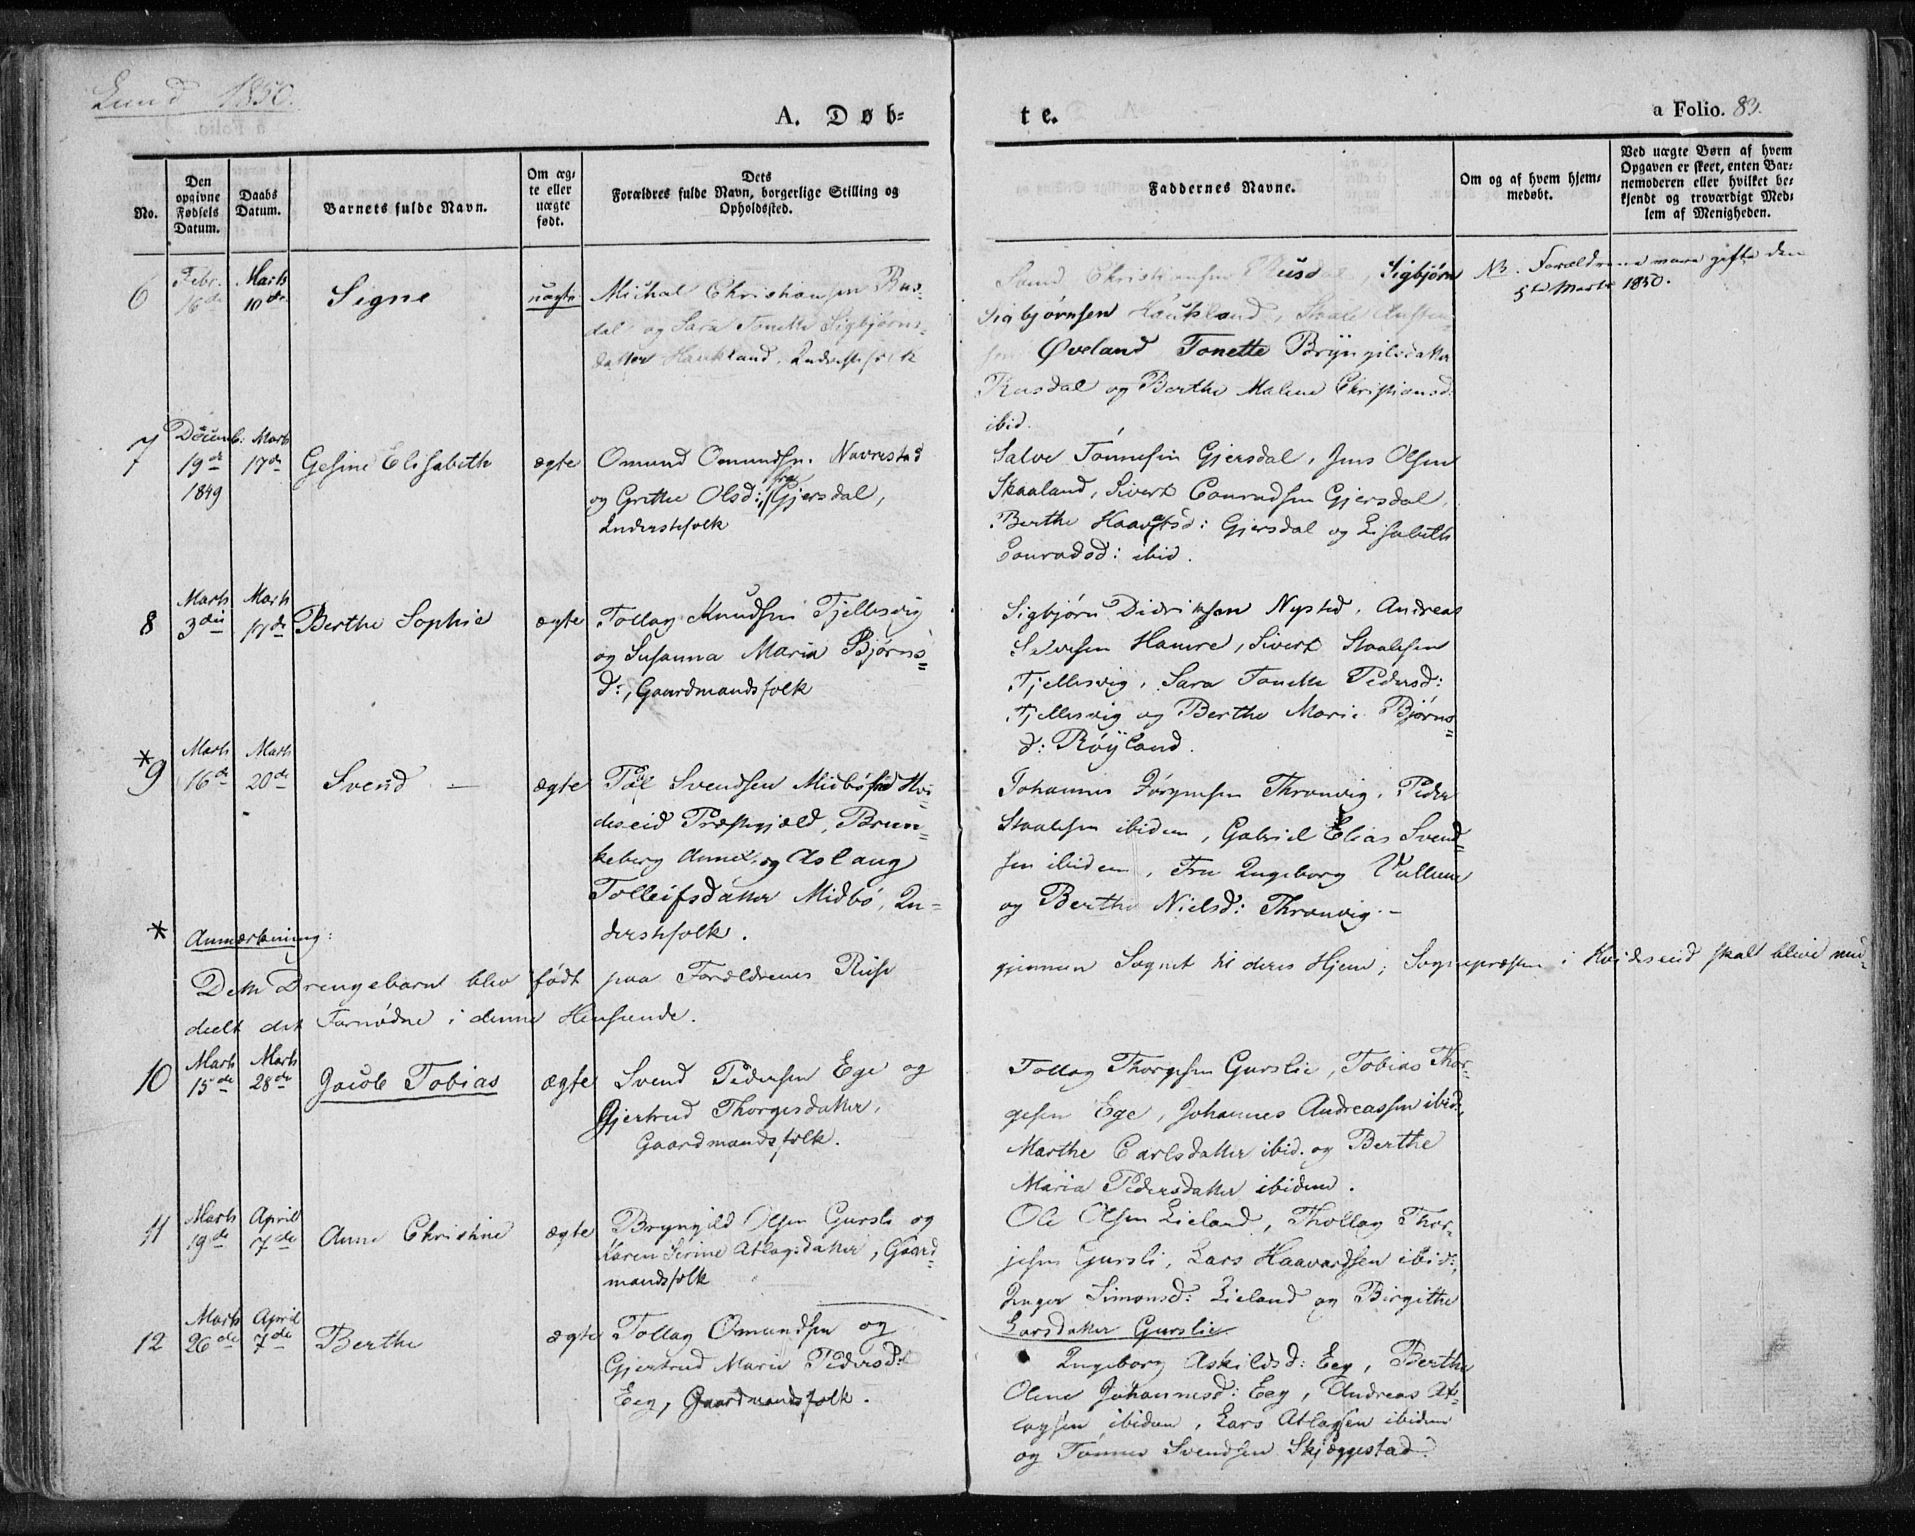 Lund 1850.
A. Døb-
te.
a Folio. 83.
No.
Den
opgivne
Fødsels
Datum.
Daabs
Datum.
Barnets fulde Navn.
Om æg-
te eller
uægte
født.
Dets
Forældres fulde Navn, borgerlige Stilling og
Opholdssted.
Faddernes Navne.
Om og af hvem hjem-
medøbt.
Ved uægte Børn af hvem
Opgaven er skeet, enten Bar-
nemoderen eller hvilket be-
kjendt og troværdigt Med-
lem af Menigheden.
6
Febr.
16de
Marts
10de
Signe
uægte
Michal Christiansen Rus-
dal og Sara Tonette Sigbjørns-
datter Haukland. Inderstefolk
Svend Christiansen Rusdal, Sigbjørn
Sigbjørnsen Haukland, Staale Austen-
sen Øveland Tonette Bryngilsdatter
Rusdal og Berthe Malene Christiansd:
ibid.
NB. Forældrene vare gifte den
5te Marts 1850.
7
Decemb:
19de
1849
Marts
17de
Gesine Elisabeth
ægte
Omund Omundsn. Navrestad
og Grethe Olsd: fra Gjersdal,
Inderstefolk
Salve Tønnesen Gjersdal, Jens Olsen
Skaaland, Sivert Conradsen Gjersdal,
Berthe Haavatsd: Gjersdal og Lisabeth
Conradsd: ibid.
8
Marts
3die
Marts
17de
Berthe Sophie
ægte
Tollag Knudsen Fjellesvig
og Susanna Maria Bjørns-
d:, Gaardmandsfolk
Sigbjørn Didriksen Nysted, Andreas
Salvesen Hamre, Sivert Staalesen
Fjellesvig, Sara Tonette Pedersd:
Fjellesvig og Berthe Marie Bjørns-
d: Røyland.
*9
Marts
16de
Marts
20de
Svend —
ægte
Tol Svendsen Midbø fra Hvi-
deseid Præstegjæld, Brun-
keberg Annex. og Aslaug
Tolleifsdatter Midbø, In-
derstefolk.
Johannes Jørgensen Thronvig, Peder
Staalesen ibidem, Gabriel Elias Svend-
sen ibidem, Fru Ingeborg
og Berthe Nielsd: Thronvig. —
* Anmærkning:
Dette Drengebarn blev født paa Forældrenes Reise gjennem Sognet til deres Hjem; Sognepræsten i Hvideseid skal blive med-
deelt det Fornødne i denne Henseende.
10
Marts
15de
Marts
28de
Jacob Tobias
ægte
Svend Pedersen Ege og
Gjertrud Thorgesdatter,
Gaardmandsfolk.
Tollag Thorgesen Gurslie, Tobias Thor-
gesen Ege, Johannes Andreassen ibid.,
Marthe Carlsdatter ibid. og Berthe
Maria Pedersdatter ibidem.
11
Marts
19de
April
7de
Anne Christine
ægte
Bryngild Olsen Gursli og
Karen Serine Atlagsdatter, Gaard-
mandsfolk
Ole Olsen Lieland, Thollag Thor-
jesen Gursli, Lars Haavardsen ibid:,
Inger Simonsd: Lieland og Birgithe
Larsdatter Gurslie
12
Marts
26de
April
7de
Berthe
ægte
Tollag Omundsen og
Gjertrud Marie Pedersd:
Eeg, Gaardmandsfolk.
Ingeborg Askildsd: Eeg, Berthe
Oline Johannesd: Eeg, Andreas At-
lagsen ibidem, Lars Atlagsen ibidem
og Tønnes Svendsen Skjeggestad.